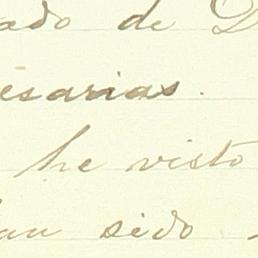 ado de D
esarias.
he visto
an sido